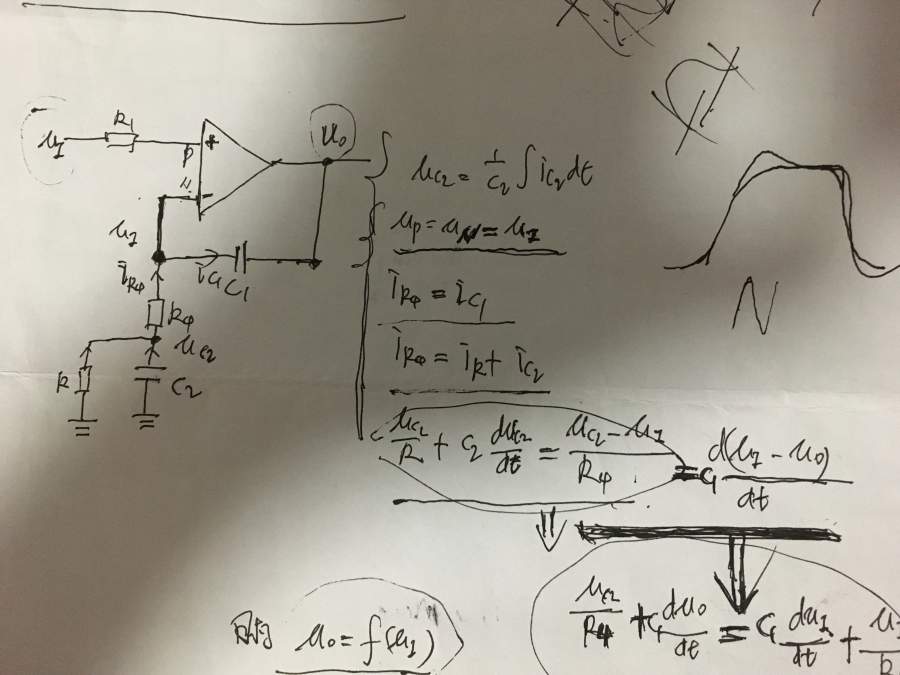 R1
u_I
P
+
N
−
u_o
u_I
i_Rφ
i_C1
C1
Rφ
u_C2
R
C2
u_C2 = 1/C2 ∫ i_C2 dt
u_P = u_N = u_I
i_Rφ = i_C1
i_Rφ = i_R + i_C2
u_C2/R + C2 du_C2/dt = (u_C2 − u_I)/Rφ = C1 d(u_I − u_o)/dt
⇓
N
u_C2/Rφ + C1 du_o/dt = C1 du_I/dt +
u_o = f(u_I)